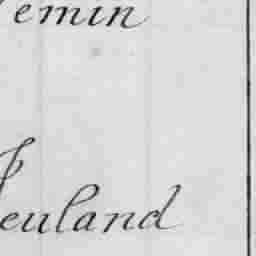 emin
euland